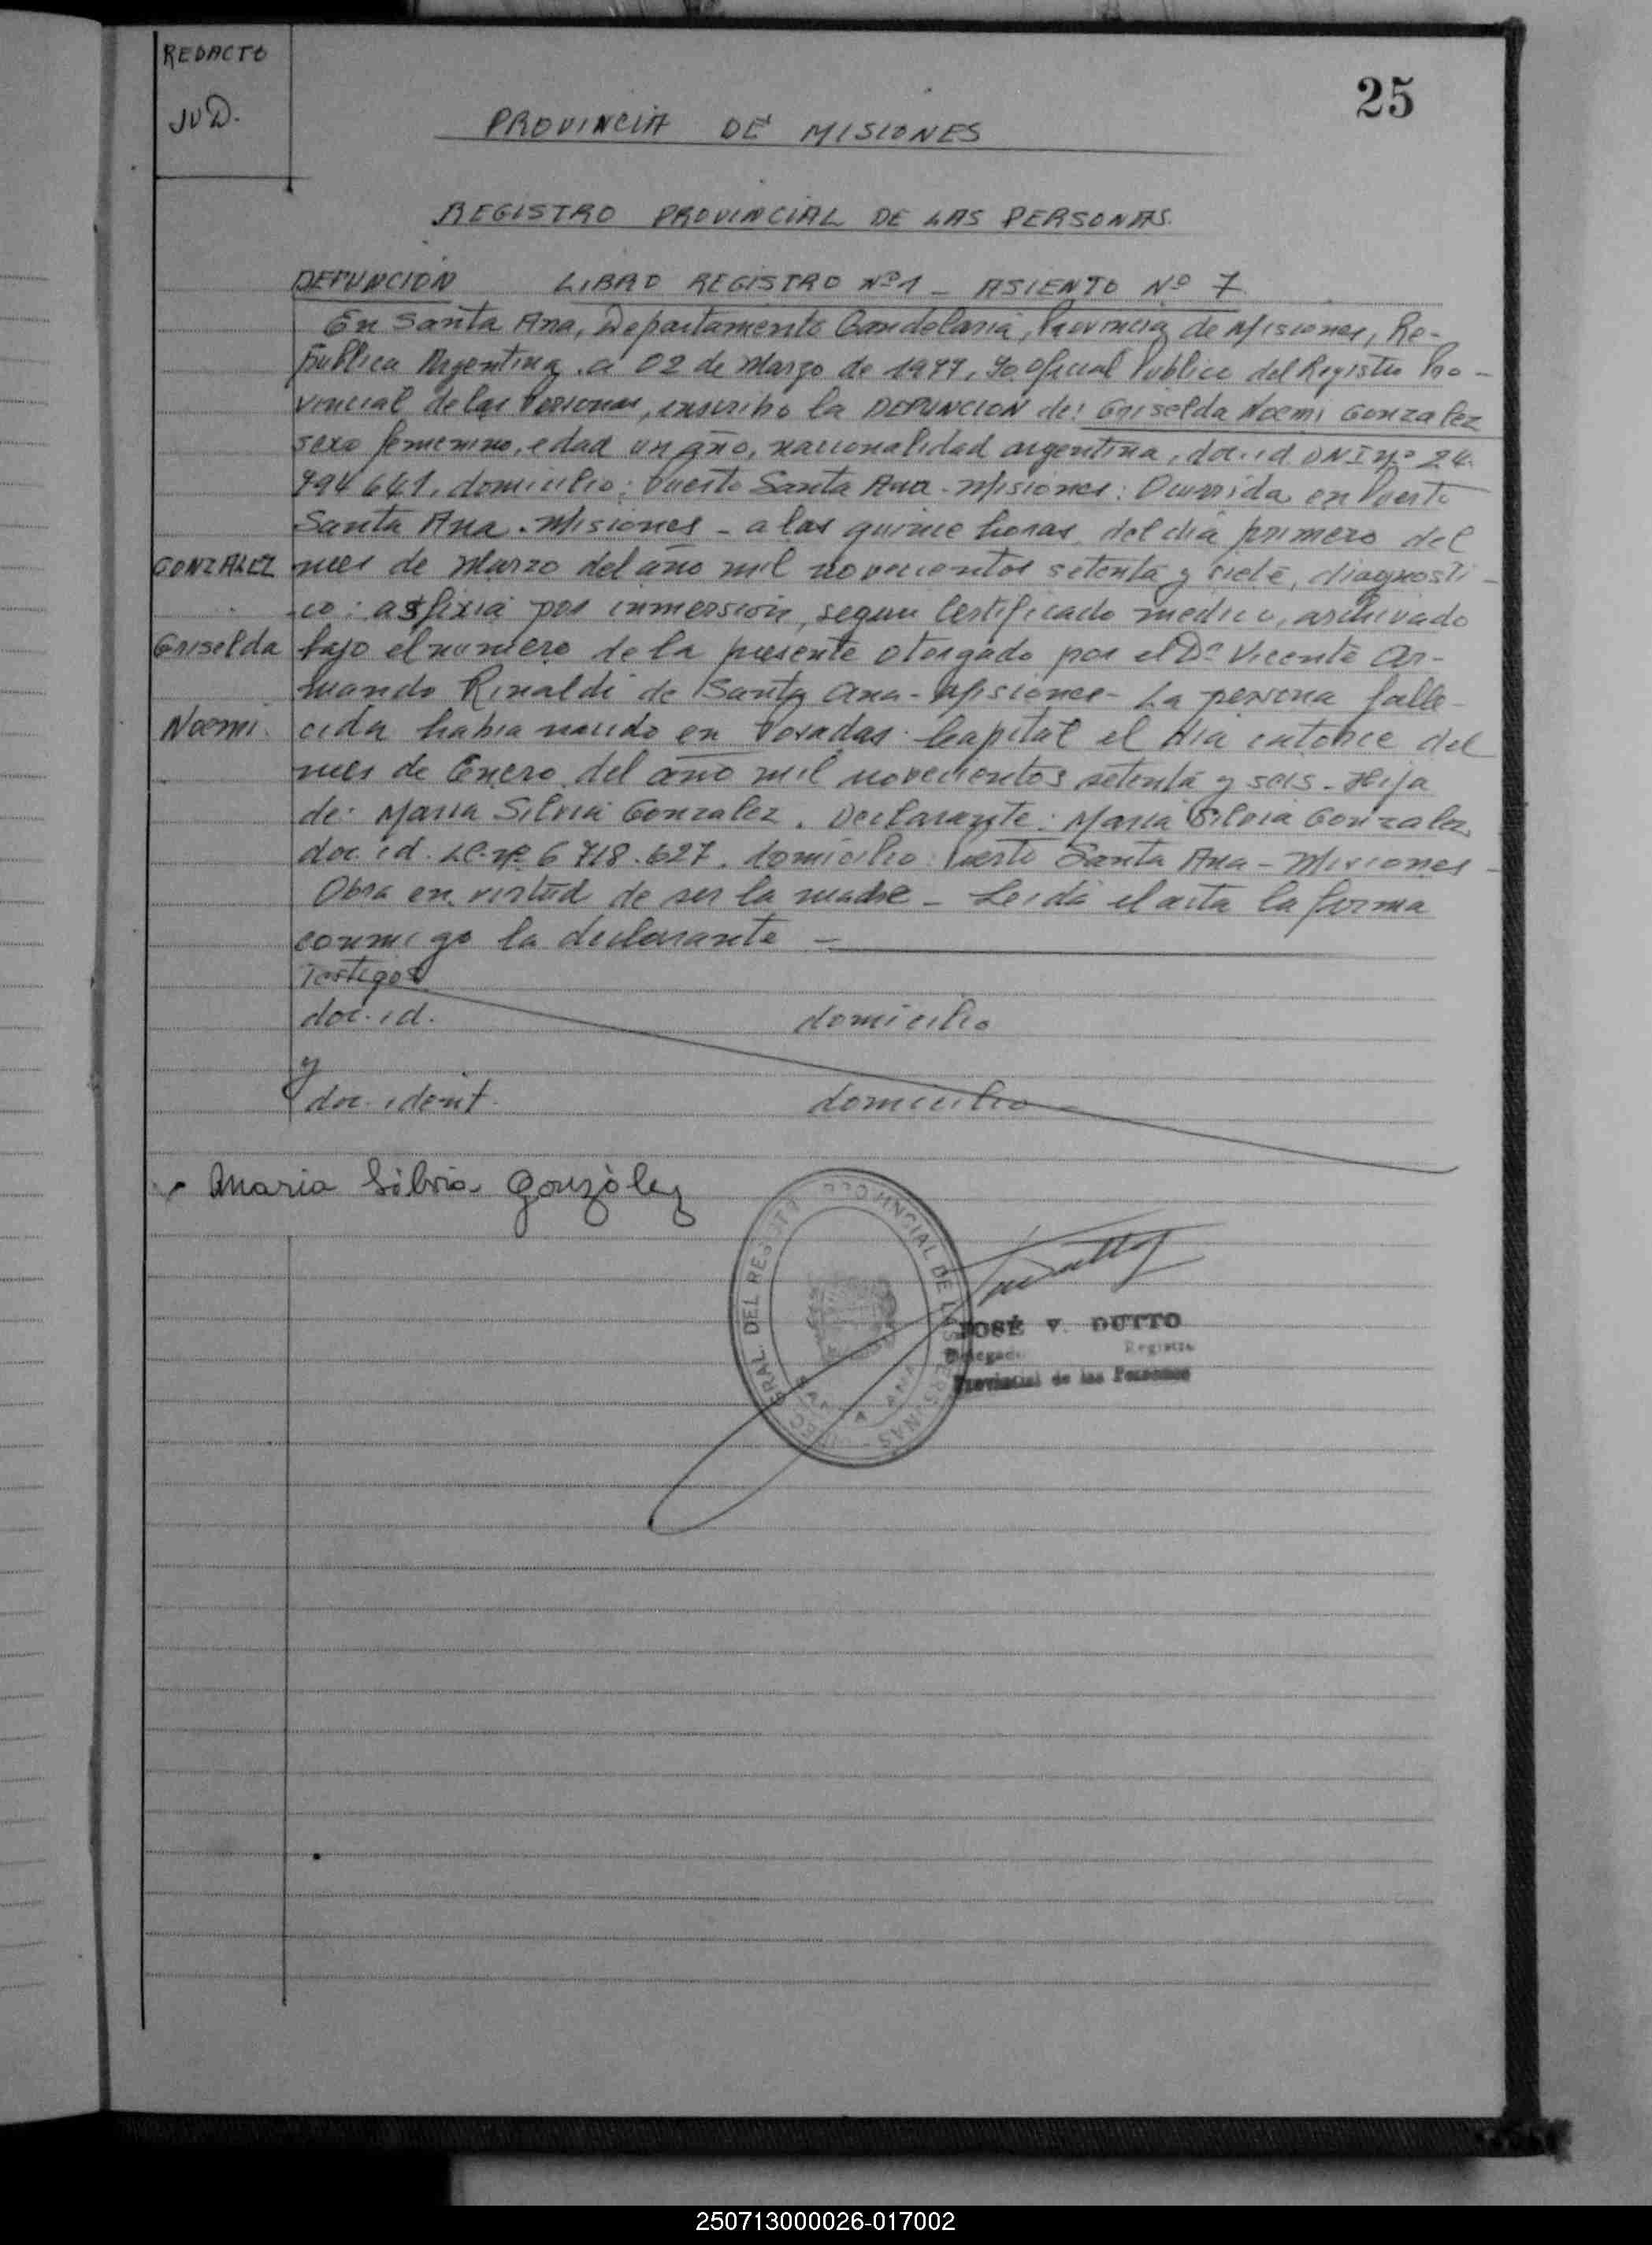 REDACTO
JVD.
25
PROVINCIA DE MISIONES
REGISTRO PROVINCIAL DE LAS PERSONAS.
DEFUNCION LIBRO REGISTRO Nº1 - ASIENTO Nº 7
En Santa Ana, Departamento Candelaria, Provincia de Misiones, Re-
publica Argentina, a 02 de Marzo de 1977, Yo Oficial Publico del Registro Pro-
vincial de las Personas, inscribo la DEFUNCION de: Griselda Noemi Gonzalez
sexo femenino, edad un año, nacionalidad argentina, doc. id. DNI Nº 24.
994 641, domicilio: Puerto Santa Ana - Misiones: Ocurrida en Puerto
Santa Ana - Misiones - a las quince horas, del dia primero del
GONZALEZ mes de Marzo del año mil novecientos setenta y siete, diagnosti-
co: asfixia por inmersion, segun Certificado medico, archivado
Griselda bajo el numero de la presente otorgado por el Dr. Vicente Ar-
mando Rinaldi de Santa Ana - Misiones - La persona falle-
Noemi. cida habia nacido en Posadas - Capital el dia catorce del
mes de Enero del año mil novecientos setenta y seis - Hija
de: Maria Silvia Gonzalez. Declarante: Maria Silvia Gonzalez,
doc. id. LC. Nº 6 718.627, domicilio: Puerto Santa Ana - Misiones -
Obra en virtud de ser la madre - Leida el acta la firma
conmigo la declarante -
Testigos
doc. id. domicilio
y
doc. ident. domicilio
Maria Silvia Gonzàlez
GRAL. DEL REGISTRO PROVINCIAL DE LAS PERSONAS
SANTA ANA
JOSÉ V. DUTTO
Delegado Registro
Provincial de las Personas
250713000026-017002